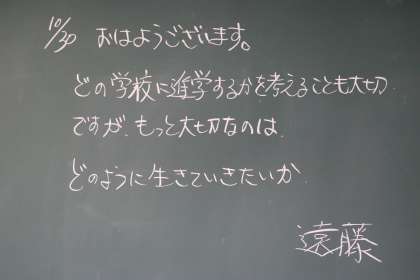 10/30 おはようございます。
どの学校に進学するかを考えることも大切
ですが、もっと大切なのは、
どのように生きていきたいか.
遠藤